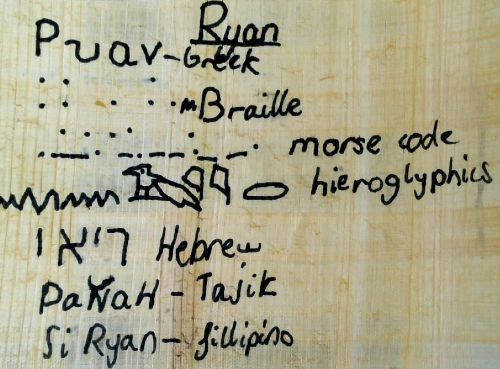 Ryan
Ρυαν – Greek
Braille
morse code
hieroglyphics
ריאן Hebrew
РаЙаН – Tajik
Si Ryan – fillipino